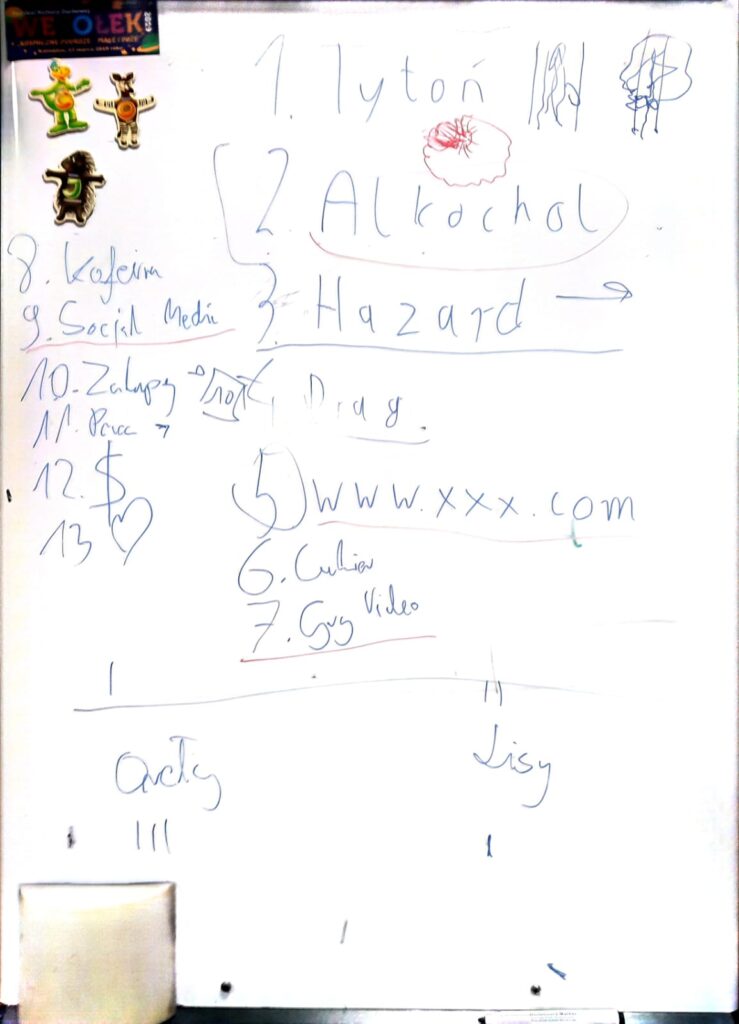 1. Tytoń
2. Alkochol
3. Hazard →
4. Drag.
5) www.xxx.com
6. Cukier
7. Gry Video
8. Kofeina
9. Socjal Media
10. Zakupy →
11. Praca →
12. $
13 ♡
Orły
Lisy